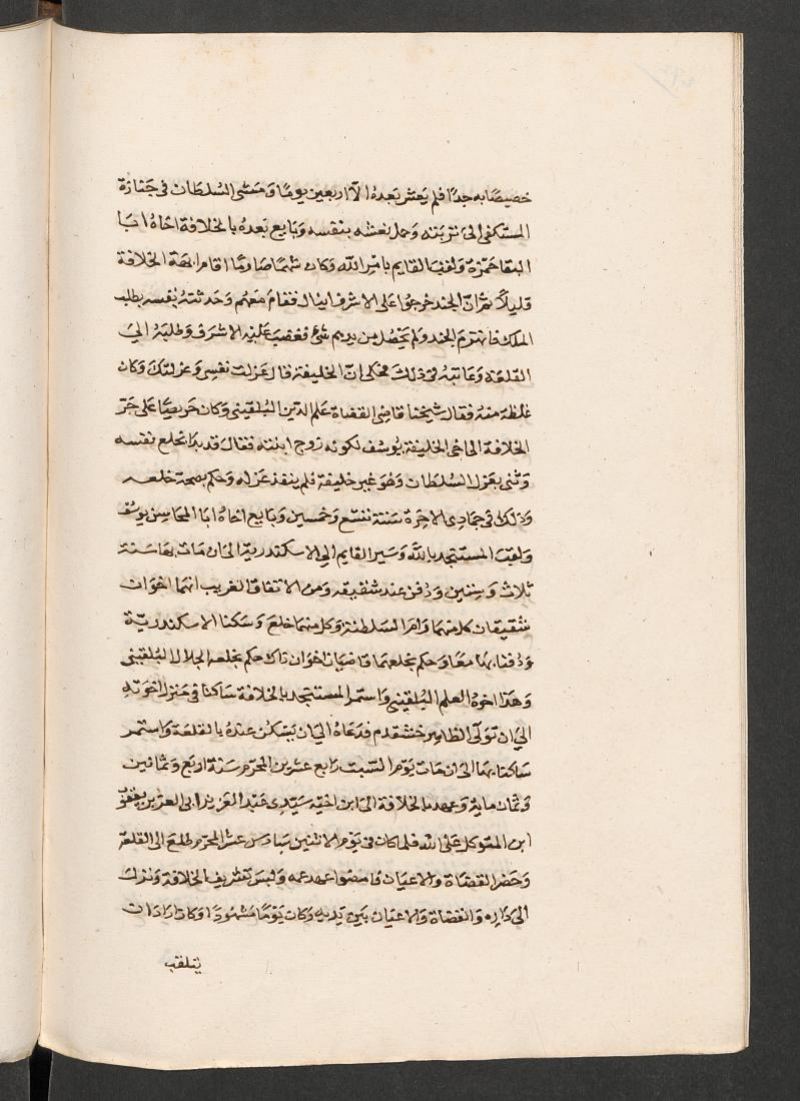 خصيصًا به جدًا فلم يعش بعده الا اربعين يومًا ومشى السلطان في جنازة
المستكفي الى تربته وحمل نعشه بنفسه وبايع بعده بالخلافة اخاه ابا
البقا حمزة ولقب القايم بامر الله وكان شهما صارمًا اقام ابهة الخلافة
قليلاً ثم ان الجند خرجوا على الاشرف اينال فقام معهم وحدثته نفسه بطلب
الملك فانهزم الجند ولم يحصل من يديهم شئ فغضب عليه الاشرف وطلبه الى
القلعة وعاتبه في ذلك فحكى ان الخليفة قال عزلت نفسي وعزلتك وكان
غلطة منه فقال شيخنا قاضي القضاة علم الدين البلقيني وكان حريصًا على جر
الخلافة الى اخي الخليفة يوسف لكونه زوج ابنته فقال قد بدا بخلع نفسه
وثنى بعزل السلطان وهو غير خليفة فلم ينفذ عزله وحكم بصحة خلعه
وذلك في جمادى الاخرة سنة تسع وخمسين وبايع اخاه ابا المحاسن يوسف
ولقب المستنجد بالله وسير القايم الى الاسكندرية الى ان مات بها سنة
ثلاث وستين ودفن عند شقيقه ومن الاتفاق الغريب انهما اخوان
شقيقان كل منهما رام السلطنة وكل منهما خلع وسكنا الاسكندرية
ودفنا بها معا وحكم بخلعهما قاضيان اخوان ذاك حكم بخلعه الجلال البلقيني
وهذا اخوه العلم البلقيني واستمر المستنجد بالخلافة ساكنا في منزل اخوته
الى ان تولى الظاهر خشقدم فدعاه الى ان يسكن عنده بالقلعة واستمر
ساكنا بها الى ان مات يوم السبت رابع عشرين المحرم سنة اربع وثمانين
وثمان ماية وعهد بالخلافة الى ابن اخيه سيدي عبد العزيز ابي العز بن يعقوب
ابن المتوكل على الله فلما كان في يوم الاثنين سادس عشر المحرم طلع الى القلعة
وحضر القضاة والاعيان فامضوا عهد عمه ولبس تشريف الخلافة ونزل
الى داره والقضاة والاعيان بين يديه وكان يومًا مشهودًا وكان اراد ان
يتلقب